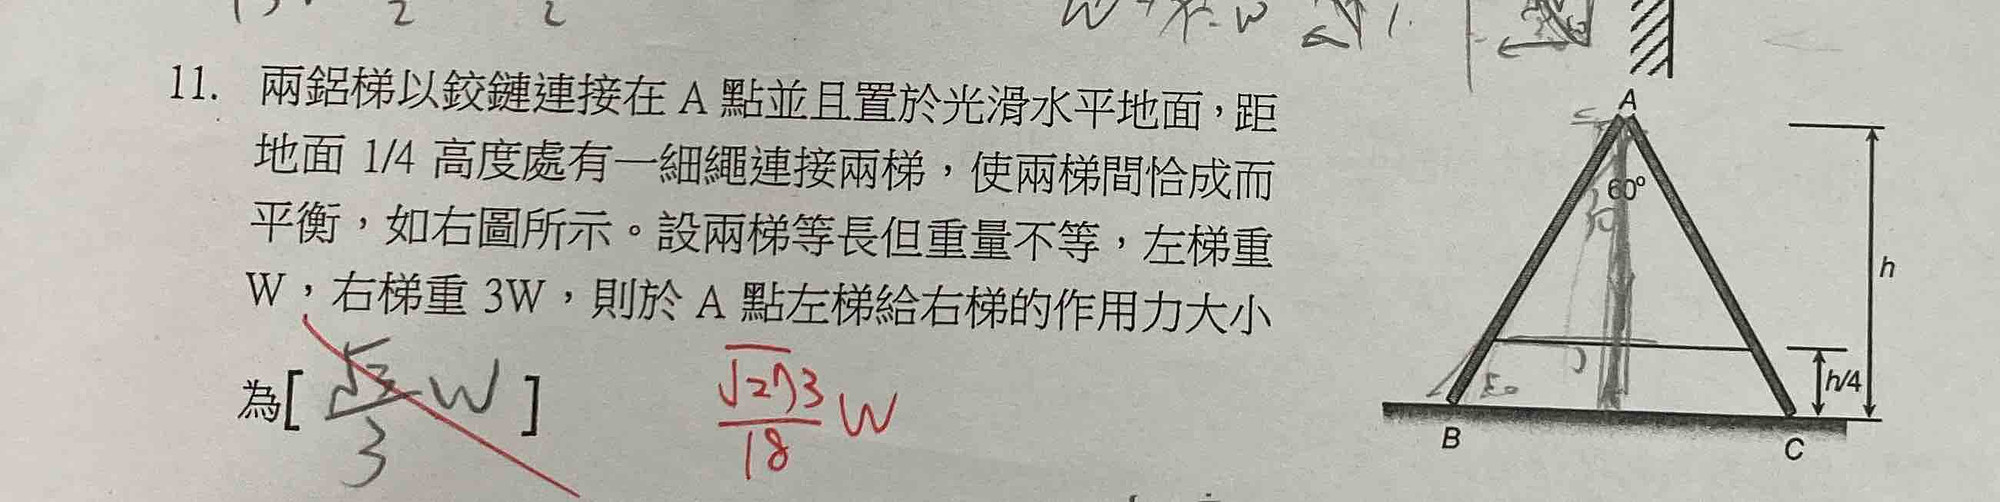 11. 兩鋁梯以鉸鏈連接在 A 點並且置於光滑水平地面，距
地面 1/4 高度處有一細繩連接兩梯，使兩梯間恰成而
平衡，如右圖所示。設兩梯等長但重量不等，左梯重
W，右梯重 3W，則於 A 點左梯給右梯的作用力大小
為[ √3/3 W ]
√273/18 W
A
60°
h
h/4
B
C